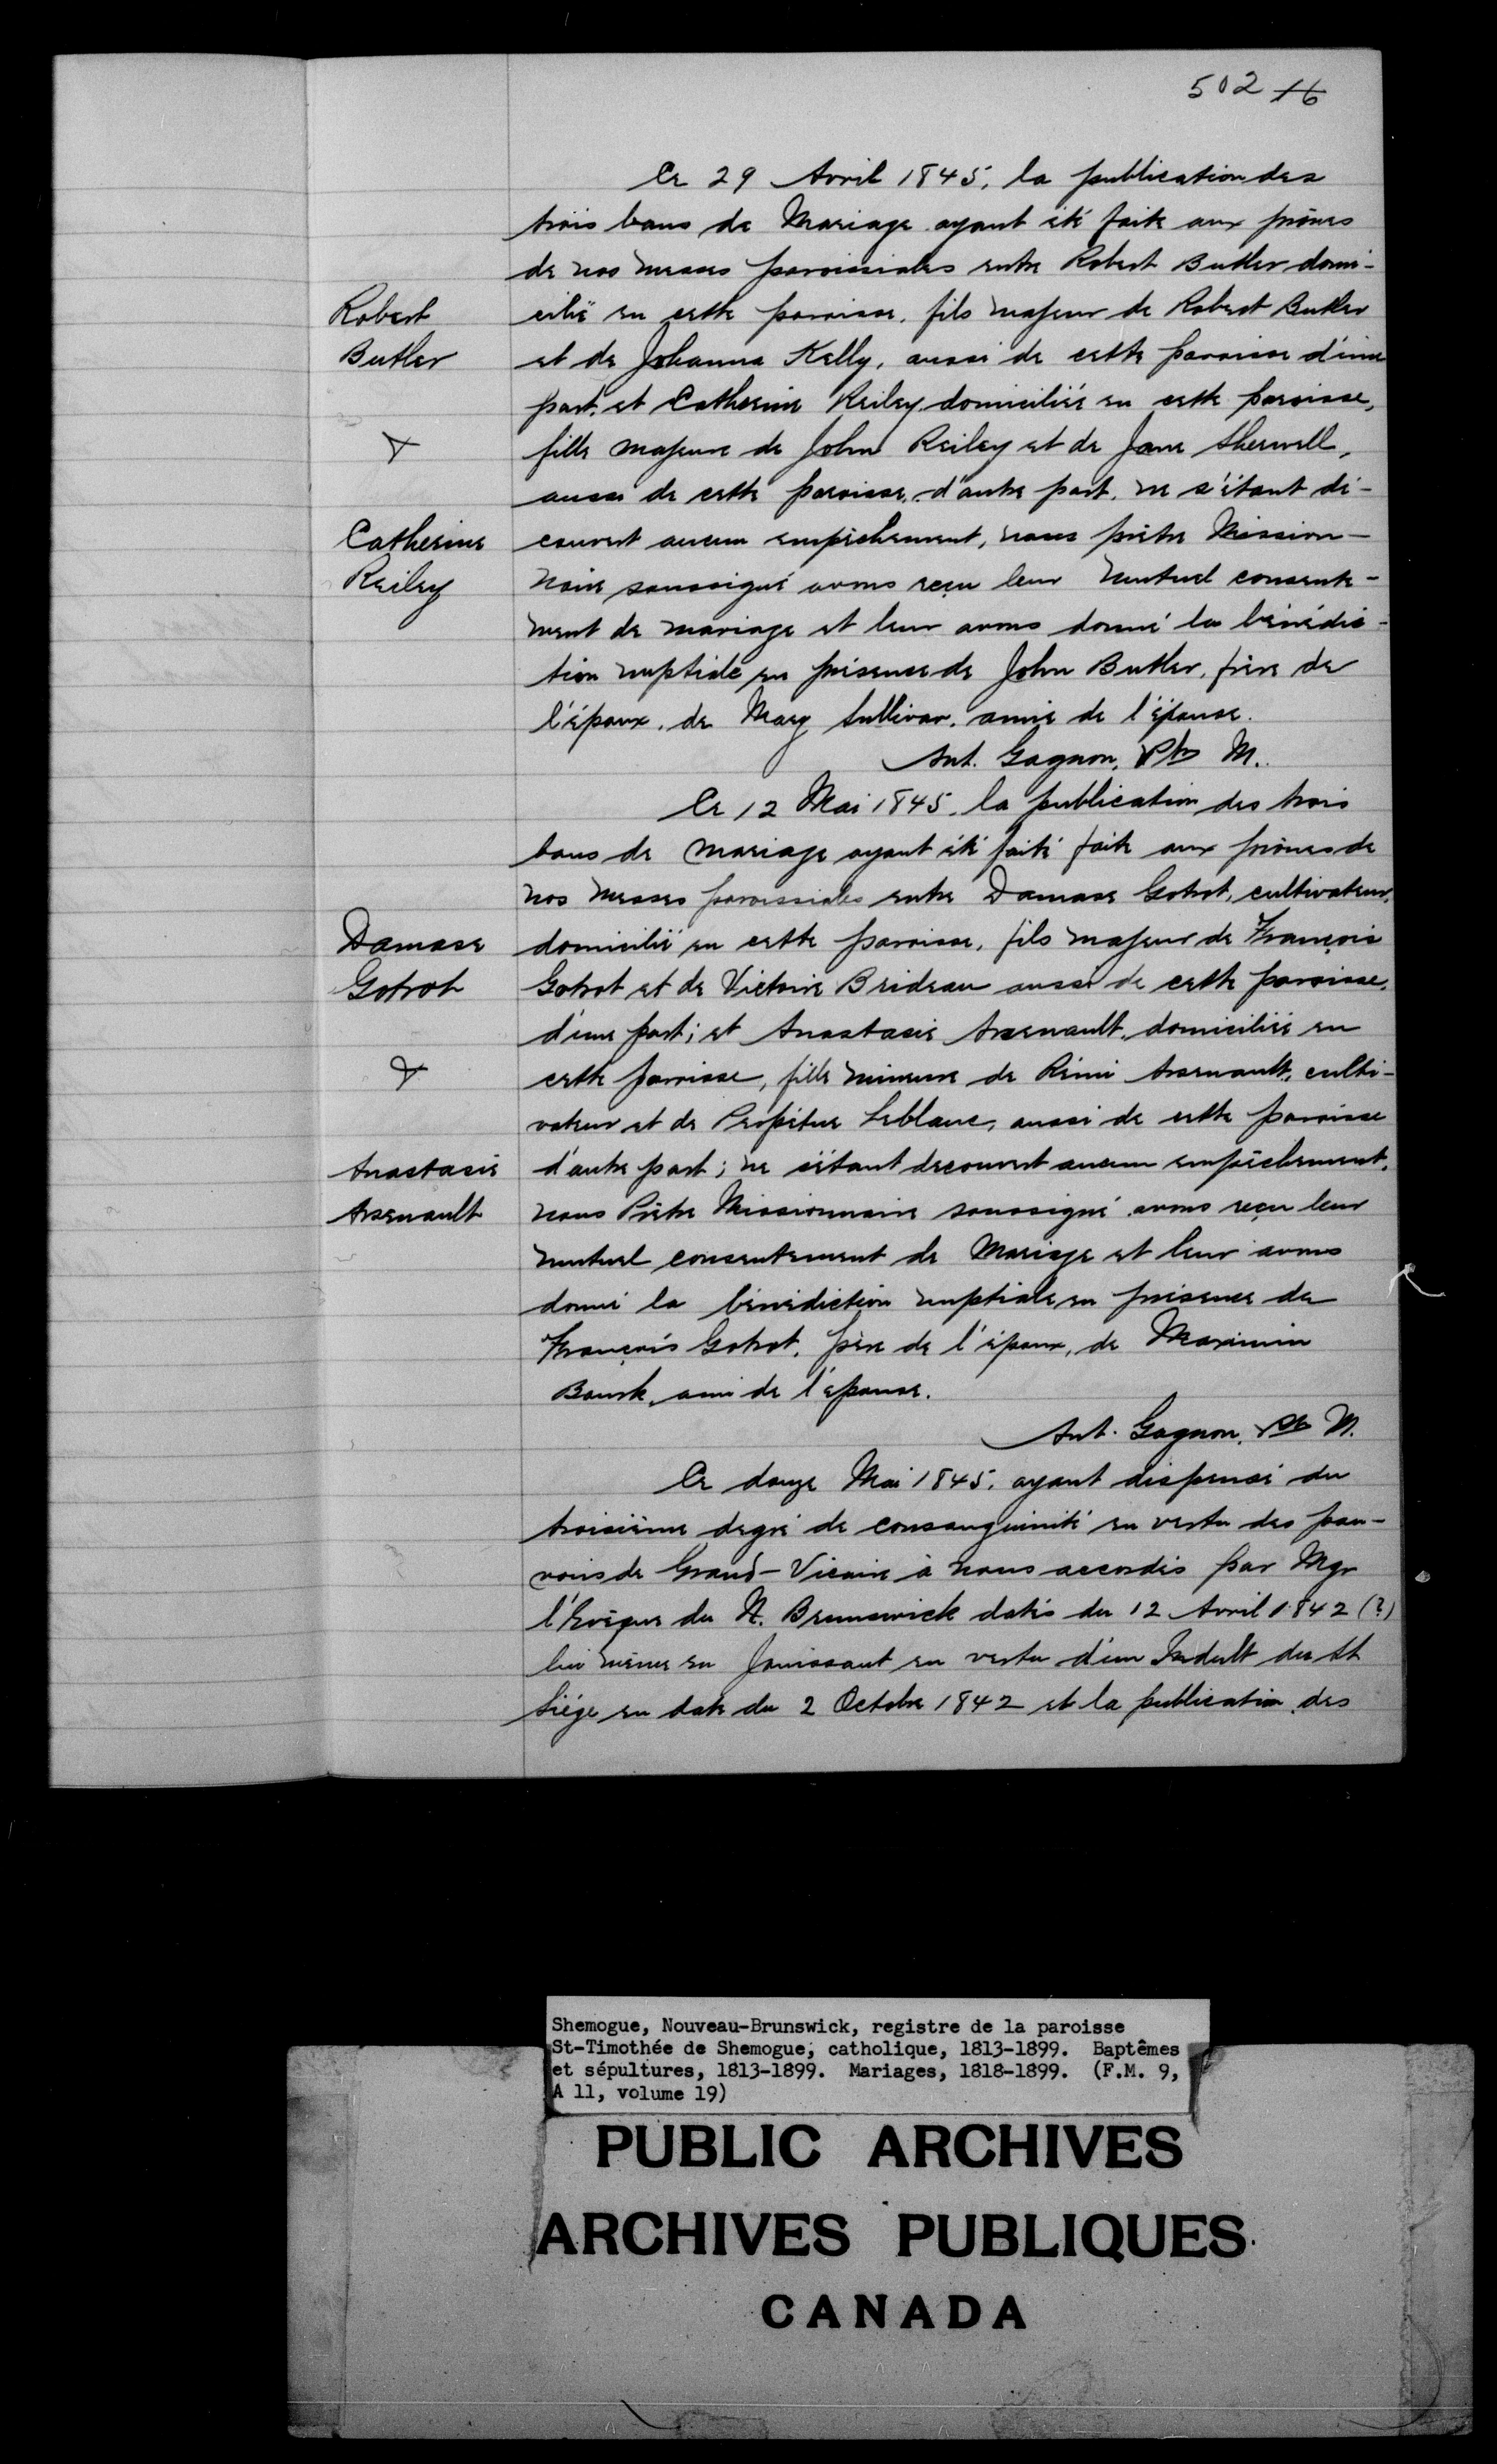 502 16
Ce 29 Avril 1845, la publication des
trois bans de Mariage ayant été faite aux prônes
de nos messes paroissiales entre Robert Butler domi-
cilié en cette paroisse, fils majeur de Robert Butler
et de Johanna Kelly, aussi de cette paroisse d'une
part, et Catherine Reiley domiciliée en cette paroisse,
fille majeure de John Reiley et de Jane Sherwell,
aussi de cette paroisse, d'autre part, ne s'étant dé-
couvert aucun empêchement, nous prêtre Mission-
naire soussigné avons reçu leur mutuel consente-
ment de mariage et leur avons donné la bénédic-
tion nuptiale en présence de John Butler, frère de
l'époux, de Mary Sullivan, amie de l'épouse.
Ant. Gagnon, Ptre M.
Robert
Butler
&
Catherine
Reiley
Ce 12 Mai 1845, la publication des trois
bans de mariage ayant été faité faite aux prônes de
nos messes paroissiales entre Damase Gotrot, cultivateur,
domicilié en cette paroisse, fils majeur de François
Gotrot et de Victoire Brideau aussi de cette paroisse,
d'une part; et Anastasie Arsenault, domiciliée en
cette paroisse, fille mineure de Rémi Arsenault, culti-
vateur et de Perpétue Leblanc, aussi de cette paroisse
d'autre part; ne s'étant decouvert aucun empêchement,
nous Prêtre Missionnaire soussigné avons reçu leur
mutuel consentement de Mariage et leur avons
donné la bénédiction nuptiale en présence de
François Gotrot, père de l'époux, de Maximin
Bourk, ami de l'épouse.
Ant. Gagnon, Ptre M.
Damase
Gotrot
&
Anastasie
Arsenault
Ce douze Mai 1845, ayant dispensé du
troisième degré de consanguinité en vertu des pou-
voirs de Grand-Vicaire à nous accordés par Mgr
l'Evêque du N. Brunswick datés du 12 Avril 1842 (?)
lui même en jouissant en vertu d'un Indult du St
Siége en date du 2 Octobre 1842 et la publication des
Shemogue, Nouveau-Brunswick, registre de la paroisse
St-Timothée de Shemogue, catholique, 1813-1899. Baptêmes
et sépultures, 1813-1899. Mariages, 1818-1899. (F.M. 9,
A 11, volume 19)
PUBLIC ARCHIVES
ARCHIVES PUBLIQUES
CANADA